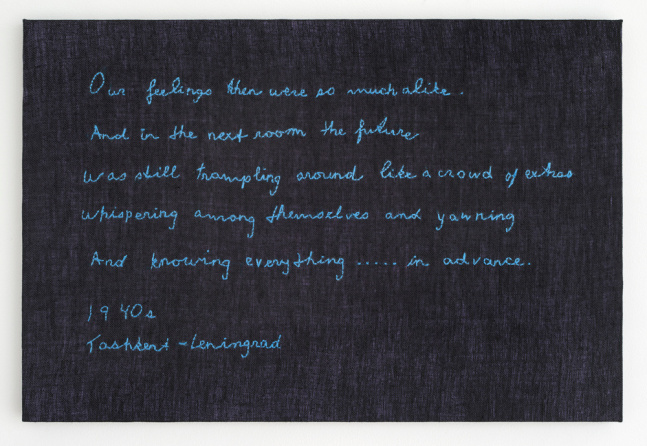 Our feelings then were so much alike.
And in the next room the future
was still trampling around like a crowd of extras
whispering among themselves and yawning
And knowing everything ..... in advance.
1940s
Tashkent - Leningrad